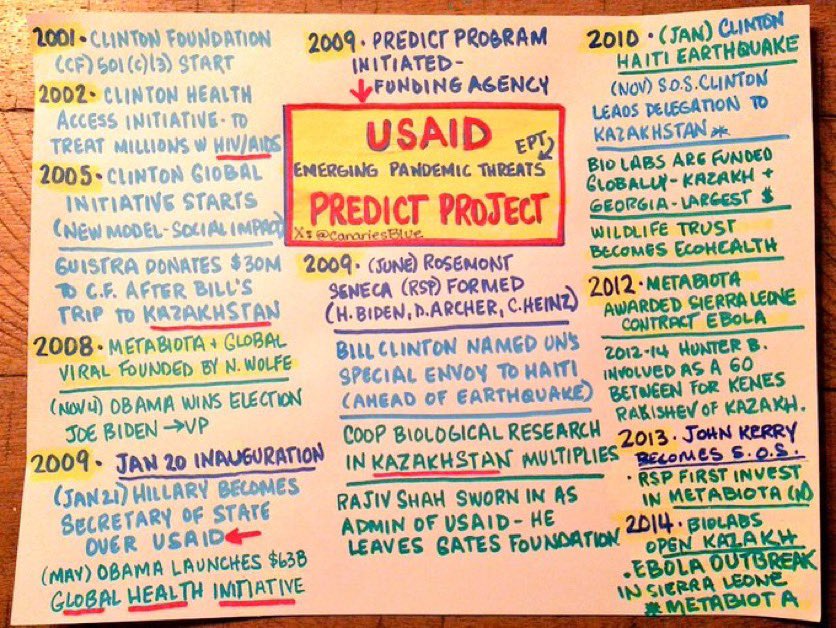 2001 • CLINTON FOUNDATION
(CF) 501(C)(3) START
2002 • CLINTON HEALTH
ACCESS INITIATIVE - TO
TREAT MILLIONS W HIV/AIDS
2005 • CLINTON GLOBAL
INITIATIVE STARTS
(NEW MODEL - SOCIAL IMPACT)
GUISTRA DONATES $30M
TO C.F. AFTER BILL'S
TRIP TO KAZAKHSTAN
2008 • METABIOTA + GLOBAL
VIRAL FOUNDED BY N. WOLFE
(NOV 4) OBAMA WINS ELECTION
JOE BIDEN → VP
2009 • JAN 20 INAUGURATION
(JAN 21) HILLARY BECOMES
SECRETARY OF STATE
OVER USAID ←
(MAY) OBAMA LAUNCHES $63B
GLOBAL HEALTH INITIATIVE
2009 • PREDICT PROGRAM
INITIATED -
FUNDING AGENCY
USAID
EPT
EMERGING PANDEMIC THREATS
PREDICT PROJECT
X: @CanariesBlue
2009 • (JUNE) ROSEMONT
SENECA (RSP) FORMED
(H. BIDEN, D. ARCHER, C. HEINZ)
BILL CLINTON NAMED UN'S
SPECIAL ENVOY TO HAITI
(AHEAD OF EARTHQUAKE)
COOP BIOLOGICAL RESEARCH
IN KAZAKHSTAN MULTIPLIES
RAJIV SHAH SWORN IN AS
ADMIN OF USAID - HE
LEAVES GATES FOUNDATION
2010 • (JAN) CLINTON
HAITI EARTHQUAKE
(NOV) S.O.S. CLINTON
LEADS DELEGATION TO
KAZAKHSTAN *
BIO LABS ARE FUNDED
GLOBALLY - KAZAKH +
GEORGIA - LARGEST $
WILDLIFE TRUST
BECOMES ECOHEALTH
2012 • METABIOTA
AWARDED SIERRA LEONE
CONTRACT EBOLA
2012-14 HUNTER B.
INVOLVED AS A GO
BETWEEN FOR KENES
RAKISHEV OF KAZAKH.
2013 • JOHN KERRY
BECOMES S.O.S.
• RSP FIRST INVEST
IN METABIOTA
2014 • BIOLABS
OPEN KAZAKH
• EBOLA OUTBREAK
IN SIERRA LEONE
* METABIOTA